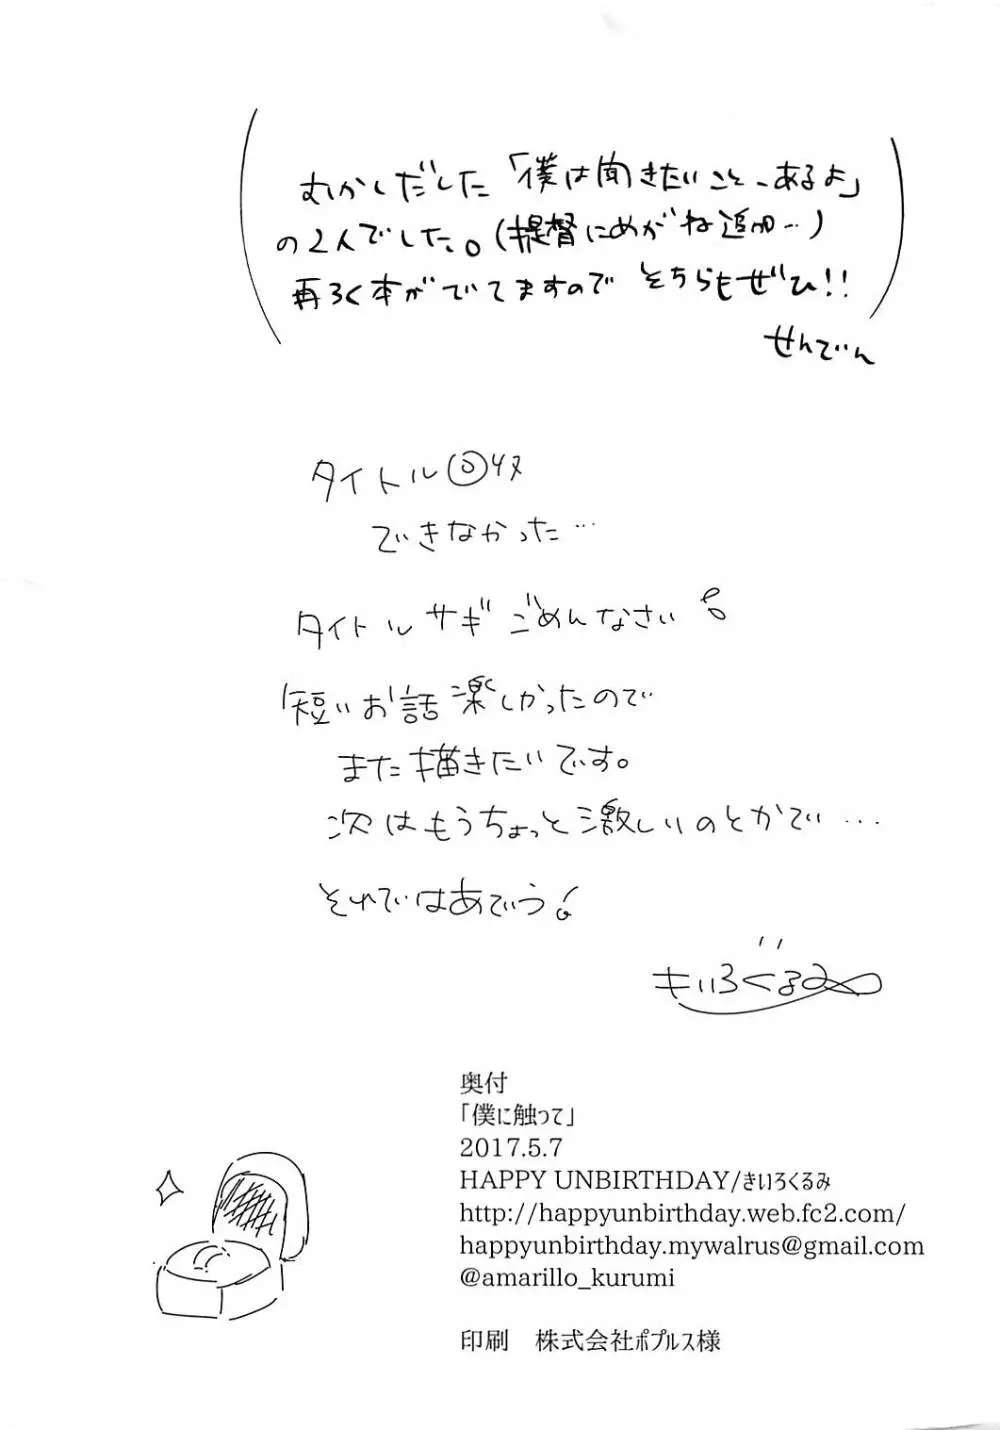 むかしだした「僕は聞きたいこと、あるよ」
の2人でした。(提督にめがね追加…)
再ろく本がでてますので そちらもぜひ!!
せんでん
タイトル
できなかった…
タイトルサギ ごめんなさい
短いお話楽しかったので
また描きたいです。
次はもうちょっと激しいのとかで…
それではあでぃう
きいろくるみ
奥付
「僕に触って」
2017.5.7
HAPPY UNBIRTHDAY/きいろくるみ
http://happyunbirthday.web.fc2.com/
happyunbirthday.mywalrus@gmail.com
@amarillo_kurumi
印刷　株式会社ポプルス様